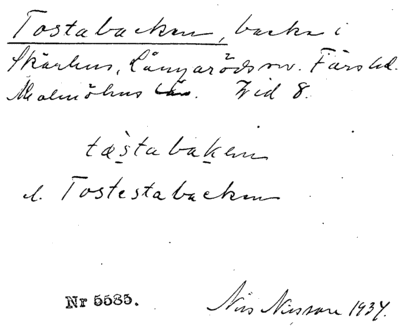 Tostabacken, backe i
Skärhus, Långaröds sn. Färs hd.
Malmöhus län. Vid 8.
tæstabaken
el. Tostestabacken
Nr 5585.
Nils Nilsson 1934.